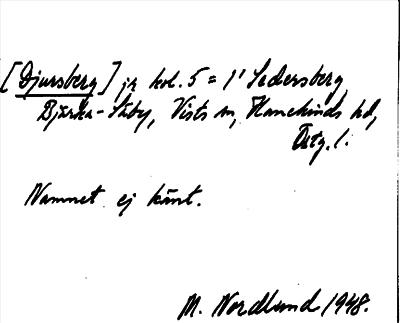 [Djursberg] jr kol. 5 = 1' Sedersberg,
Bjärka-Säby, Vists sn, Hanekinds hd,
Östg. l.
Namnet ej känt.
M. Nordlund 1948.